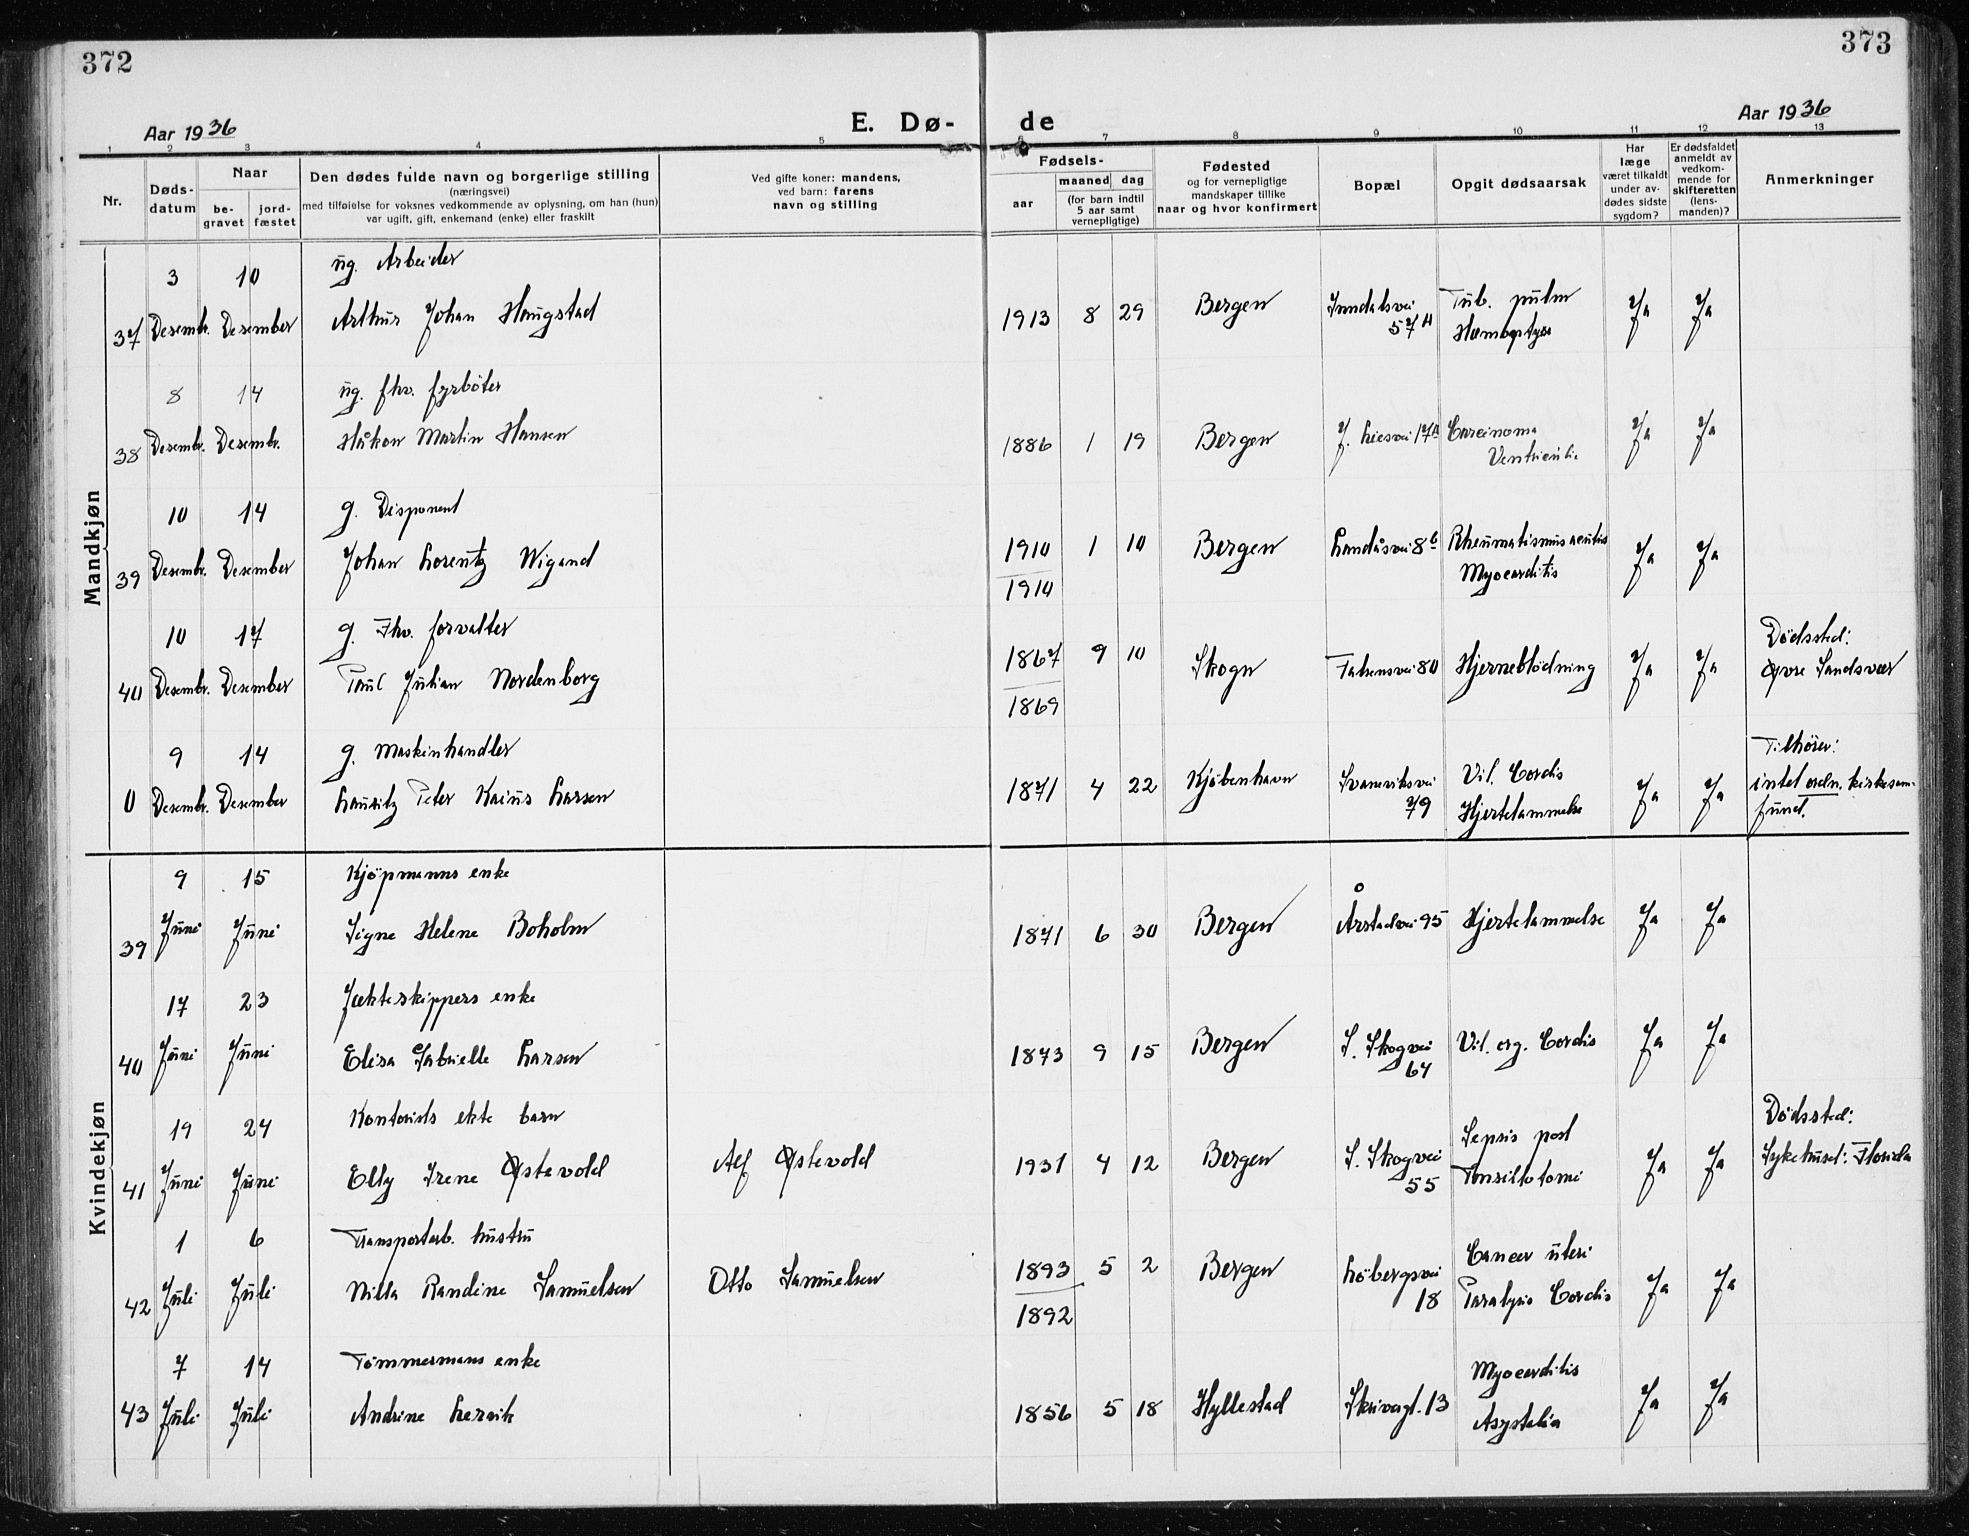 372
373
Aar 1936
E. Dø-
de
Aar 1936
1 2 3 4 5 6 7 8 9 10 11 12 13
Nr.
Døds-
datum
Naar
be-
gravet
jord-
fæstet
Den dødes fulde navn og borgerlige stilling
(næringsvei)
med tilføielse for voksnes vedkommende av oplysning, om han (hun)
var ugift, gift, enkemand (enke) eller fraskilt
Ved gifte koner: mandens,
ved barn: farens
navn og stilling
Fødsels-
aar
maaned dag
(for barn indtil
5 aar samt
vernepligtige)
Fødested
og for vernepligtige
mandskaper tillike
naar og hvor konfirmert
Bopæl
Opgit dødsaarsak
Har
læge
været tilkaldt
under av-
dødes sidste
sygdom?
Er dødsfaldet
anmeldt av
vedkom-
mende for
skifteretten
(lens-
manden)?
Anmerkninger
Mandkjøn
3 10 ug. Arbeider
37 Desembr. Desember Arthur Johan Haugstad 1913 8 29 Bergen Inndalsvei Tub. pulm Ja Ja
57A Hæmoptyse
8 14 ug. fhv. fyrbøter
38 Desembr. Desembr. Håkon Martin Hansen 1886 1 19 Bergen J. Liesvei 17A Carcinoma Ja Ja
Ventriculi
10 14 g. Disponent
39 Desembr. Desember Johan Lorentz Wigand 1910 1 10 Bergen Landåsvei 8b Rheumatismus acutus Ja Ja
1910 Myocarditis
10 17 g. Fhv. forvalter Dødssted:
40 Desembr. Desember Paul Julian Nordenborg 1867 9 10 Skogn Falsensvei 80 Hjerneblødning Ja Ja Øvre Sandsvær
1869
9 14 g. Maskinhandler Tilhører:
0 Desembr. Desember Lauritz Peter Kaius Larsen 1871 4 22 Kjøbenhavn Svaneviksvei Vit. Cordis Ja Ja intet ordn. kirkesam-
79 Hjertelammelse fund.
Kvindekjøn
9 15 Kjøpmanns enke
39 Juni Juni Signe Helene Boholm 1871 6 30 Bergen Årstadvei 95 Hjertelammelse Ja Ja
17 23 Jækteskippers enke
40 Juni Juni Elisa Gabrielle Larsen 1873 9 15 Bergen S. Skogvei Vit. org. Cordis Ja Ja
64
19 24 Kontorists ekte barn Dødssted:
41 Juni Juni Elly Irene Østevold Alf Østevold 1931 4 12 Bergen S. Skogvei Sepsis post Ja Ja Sykehuset: Florida
55 Tonsillotomi
1 6 Transportarb. hustru
42 Juli Juli Nilla Randine Samuelsen Otto Samuelsen 1893 5 2 Bergen Løbergsvei Cancer uteri Ja Ja
1892 18 Paralysis Cordis
7 14 Tømmermans enke
43 Juli Juli Andrine Lervik 1856 5 18 Hyllestad Skivergt. 13 Myocarditis Ja Ja
Asystolia